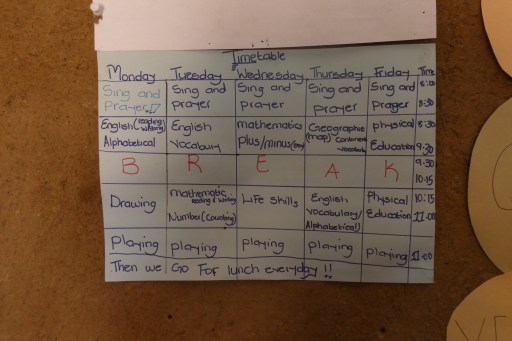 Timetable
Monday Tuesday Wednesday Thursday Friday Time
Sing and Sing and Sing and Sing and Sing and 8:00
prayer prayer prayer prayer prager 8:30
English (reading writing) English mathematics Geographie physical 8:30
Alphabetical vocabury plus/minus (map) Education 9:30
B R E A K 9:30
10:15
Drawing mathematic Life skills English Physical 10:15
reading & writing vocabulary/ Education 11:00
Number (Counting) Alphabetical)
playing playing playing playing playing 11:00
Then we Go For lunch everyday !!